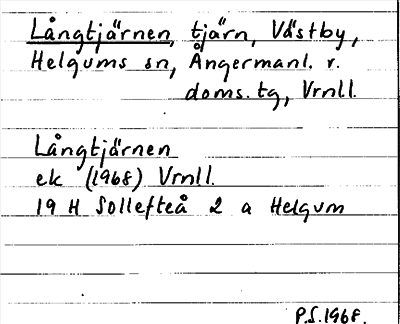 Långtjärnen, tjärn, Västby,
Helgums sn, Ångermanl. v.
doms. tg, Vrnll.
Långtjärnen
ek (1968) Vrnll.
19 H Sollefteå 2 a Helgum
P.S. 1968.